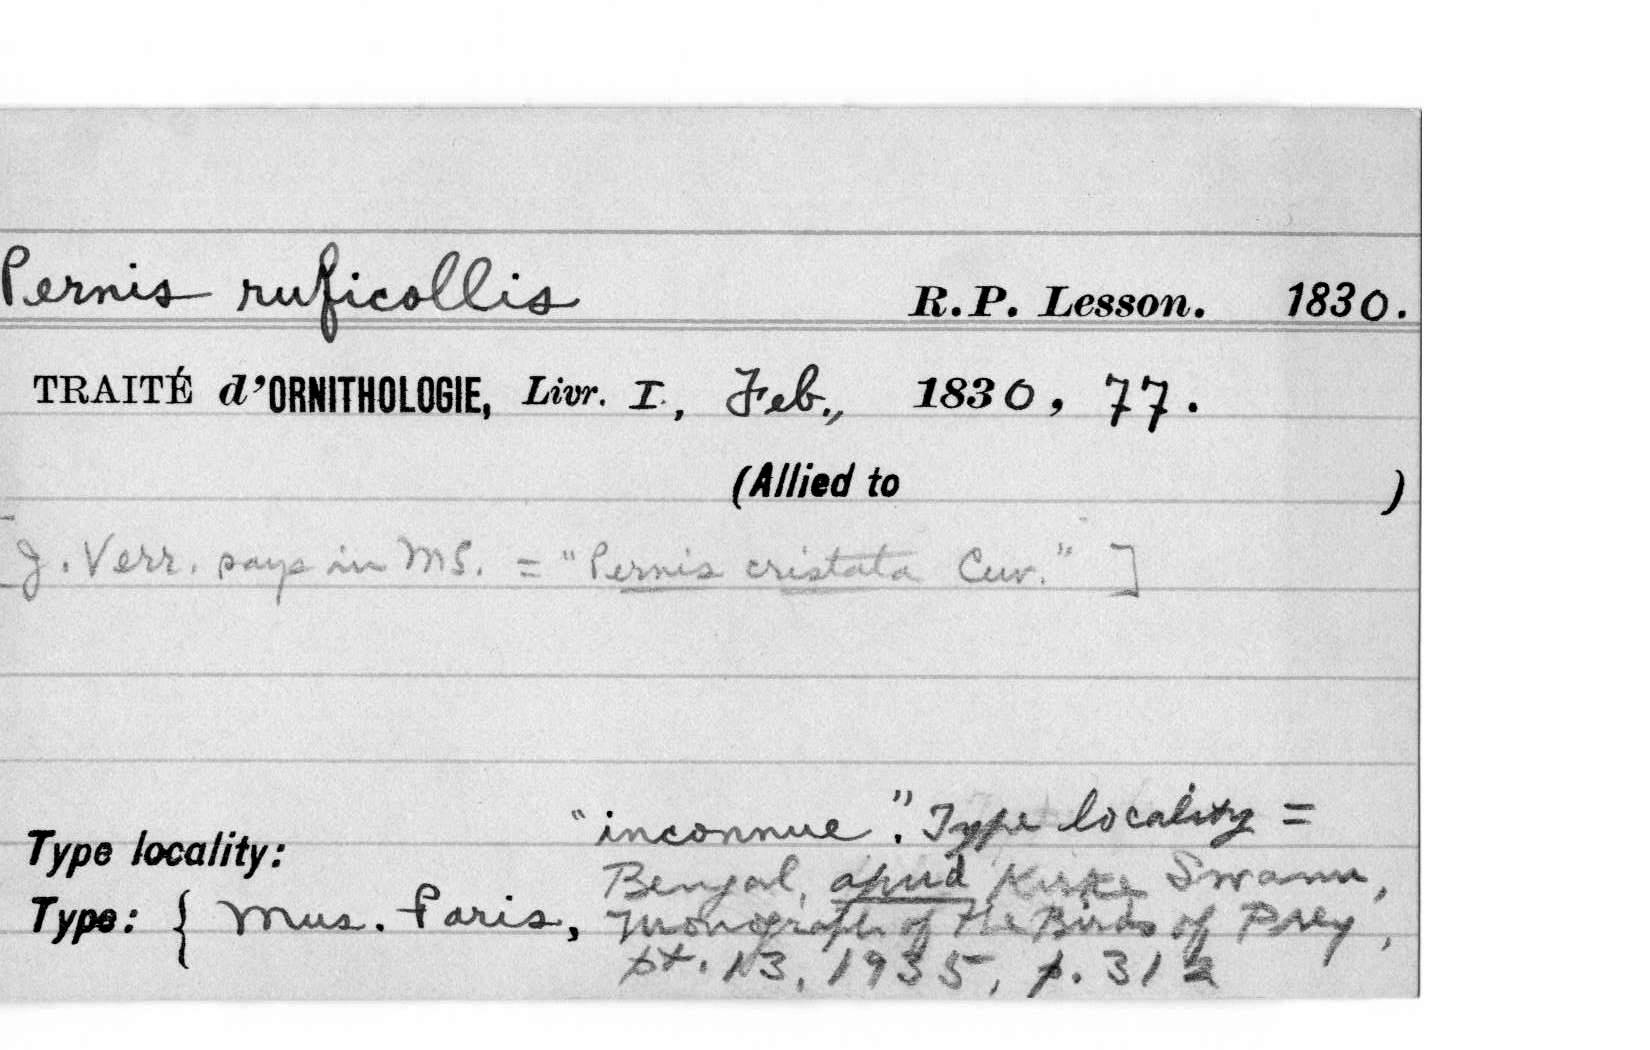 Pernis ruficollis R.P. Lesson. 1830.
TRAITÉ d'ORNITHOLOGIE, Livr. I., Feb., 1830, 77.
(Allied to )
[J. Verr. says in MS. = "Pernis cristata Cuv." ]
"inconnue". Type locality =
Type locality:
Bengal, apud Kirke Swann,
Type: { Mus. Paris, Monograph of the Birds of Prey,
pt. 13, 1935, p. 312